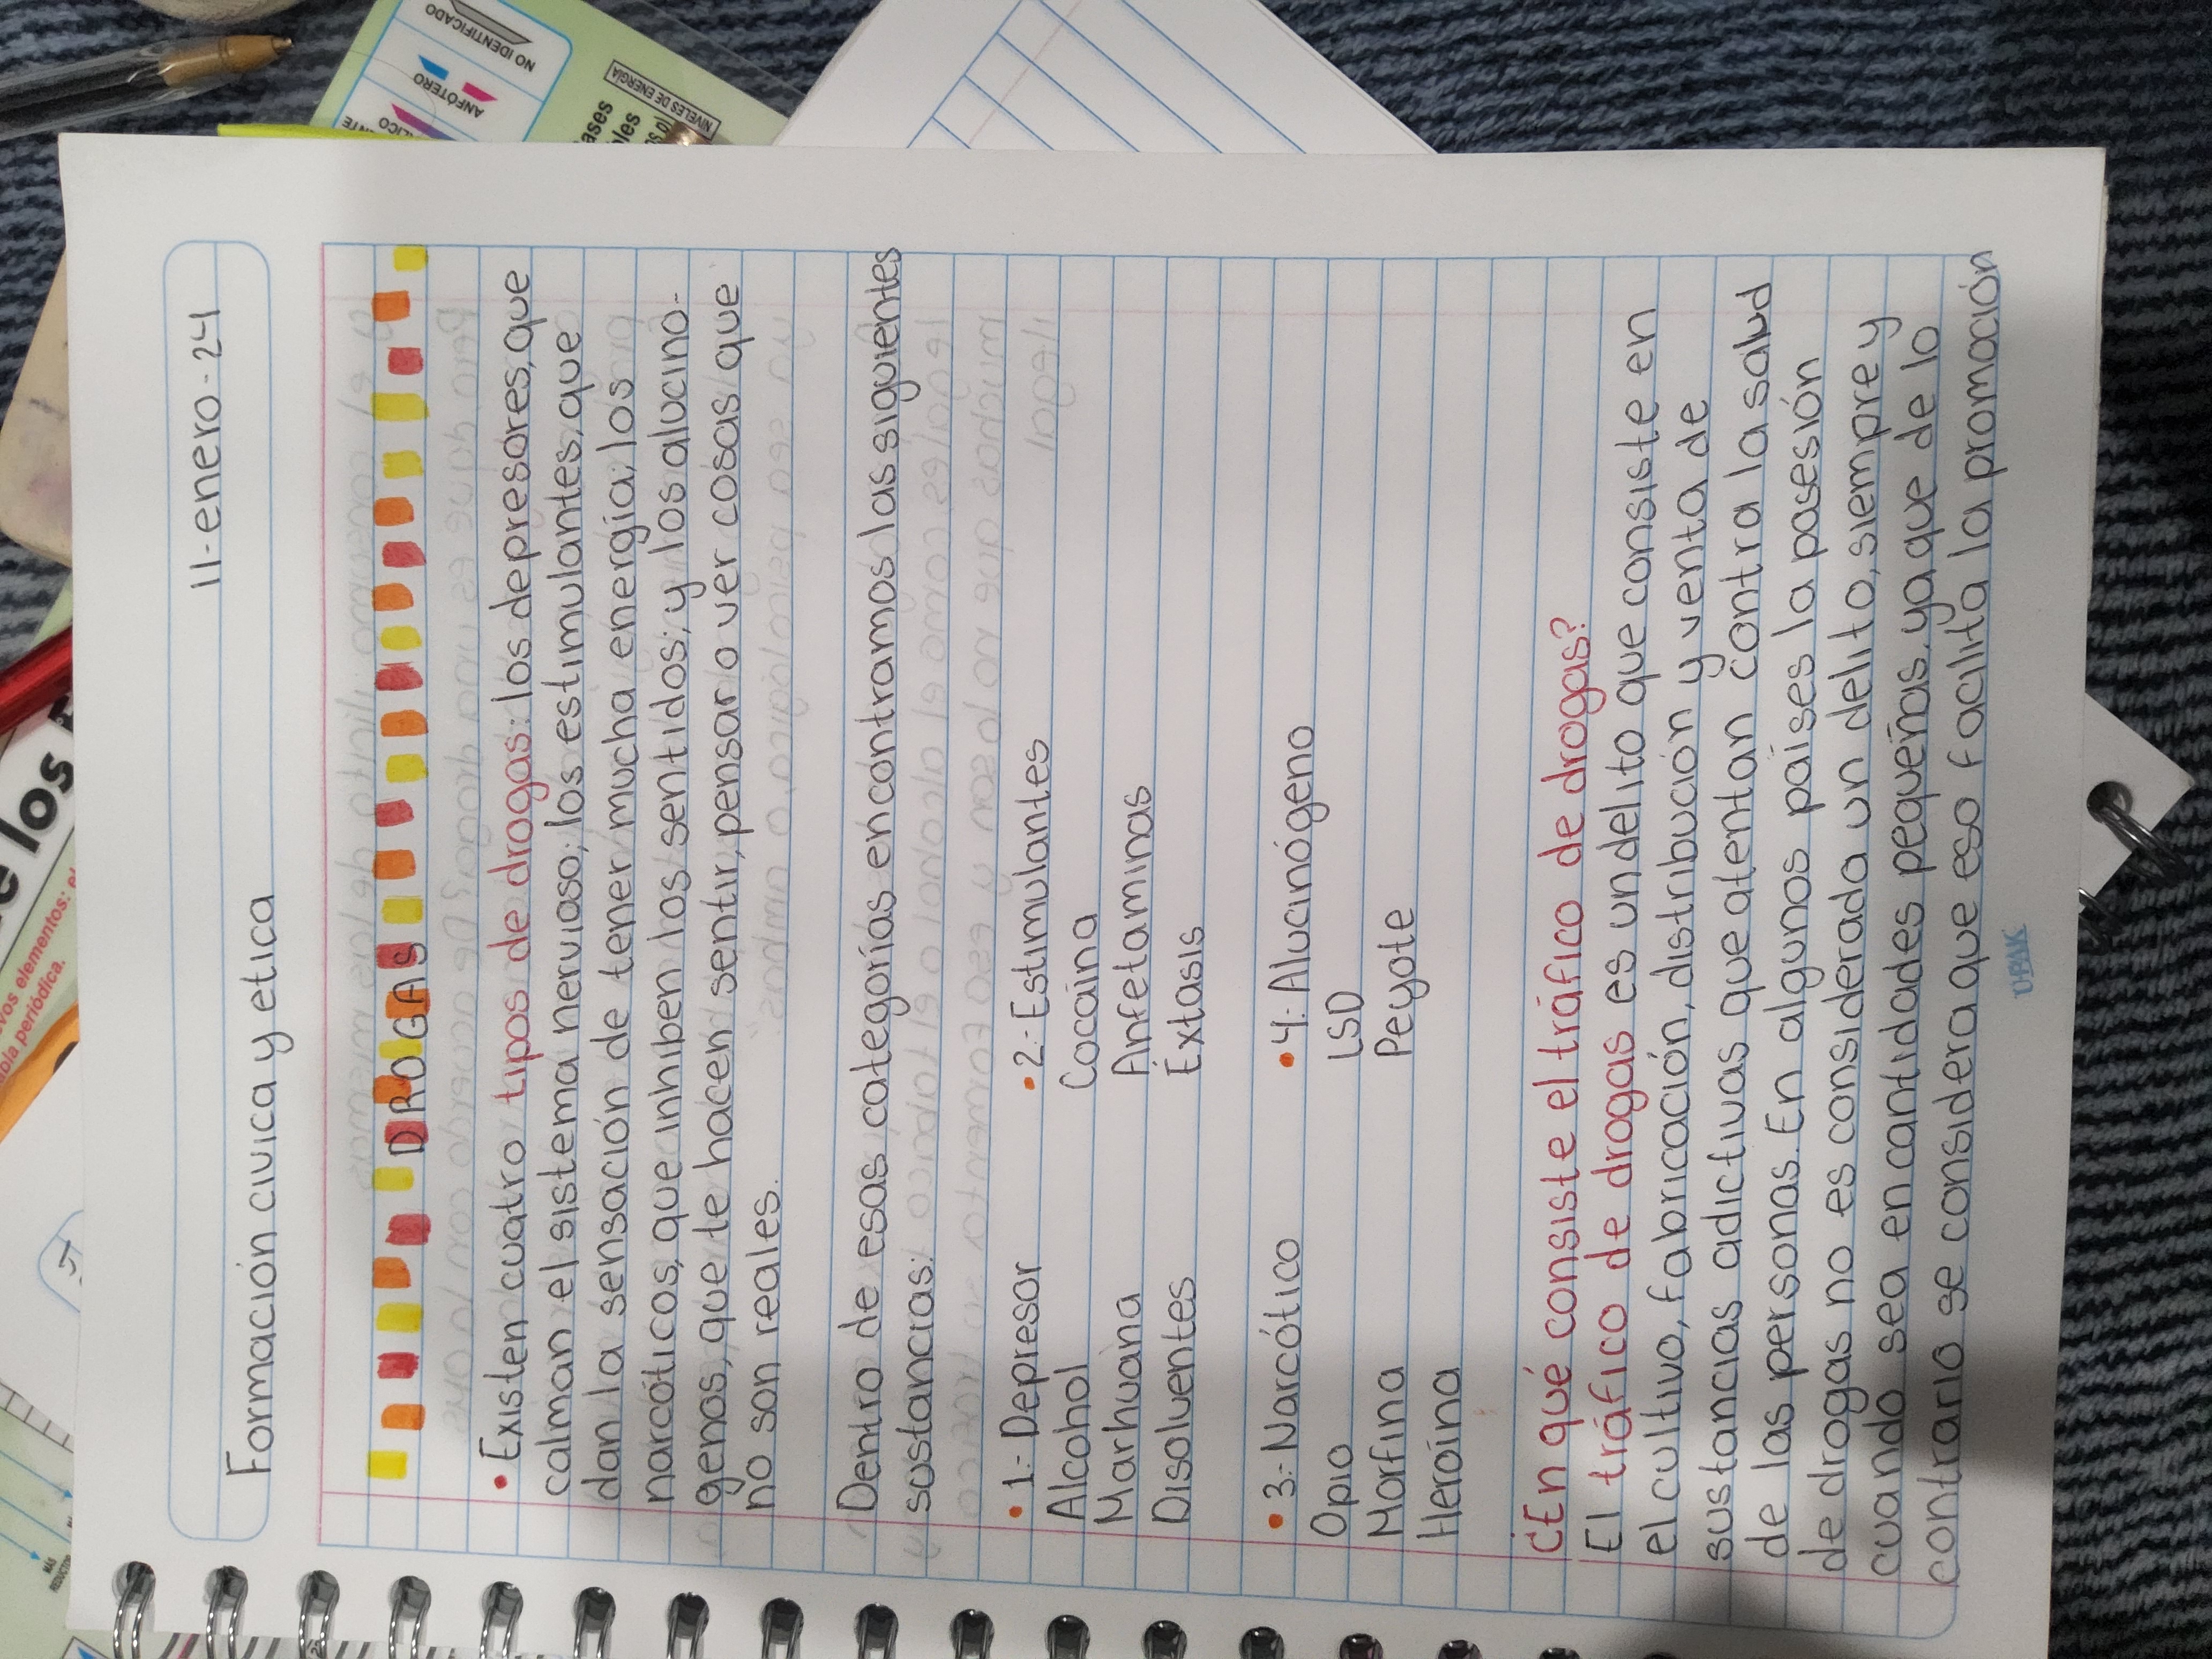 Formación civica y etica
11-enero-24
DROGAS
• Existen cuatro tipos de drogas: los depresores, que
calman el sistema nervioso; los estimulantes, que
dan la sensación de tener mucha energía; los
narcóticos, que inhiben los sentidos; y los alucino-
genos, que te hacen sentir, pensar o ver cosas que
no son reales.
Dentro de esas categorías encontramos las siguientes
sustancias:
• 1.- Depresor
Alcohol
Marhuana
Disolventes
• 2.- Estimulantes
Cocaína
Anfetaminas
Éxtasis
• 3.- Narcótico
Opio
Morfina
Heroína
• 4.- Alucinógeno
LSD
Peyote
¿En qué consiste el tráfico de drogas?
El tráfico de drogas es un delito que consiste en
el cultivo, fabricación, distribución y venta de
sustancias adictivas que atentan contra la salud
de las personas. En algunos países la posesión
de drogas no es considerado un delito, siempre y
cuando sea en cantidades pequeñas, ya que de lo
contrario se considera que eso facilita la promoción
NO IDENTIFICADO
ANFÓTERO
NIVELES DE ENERGÍA
e los
vos elementos: el
bla periódica.